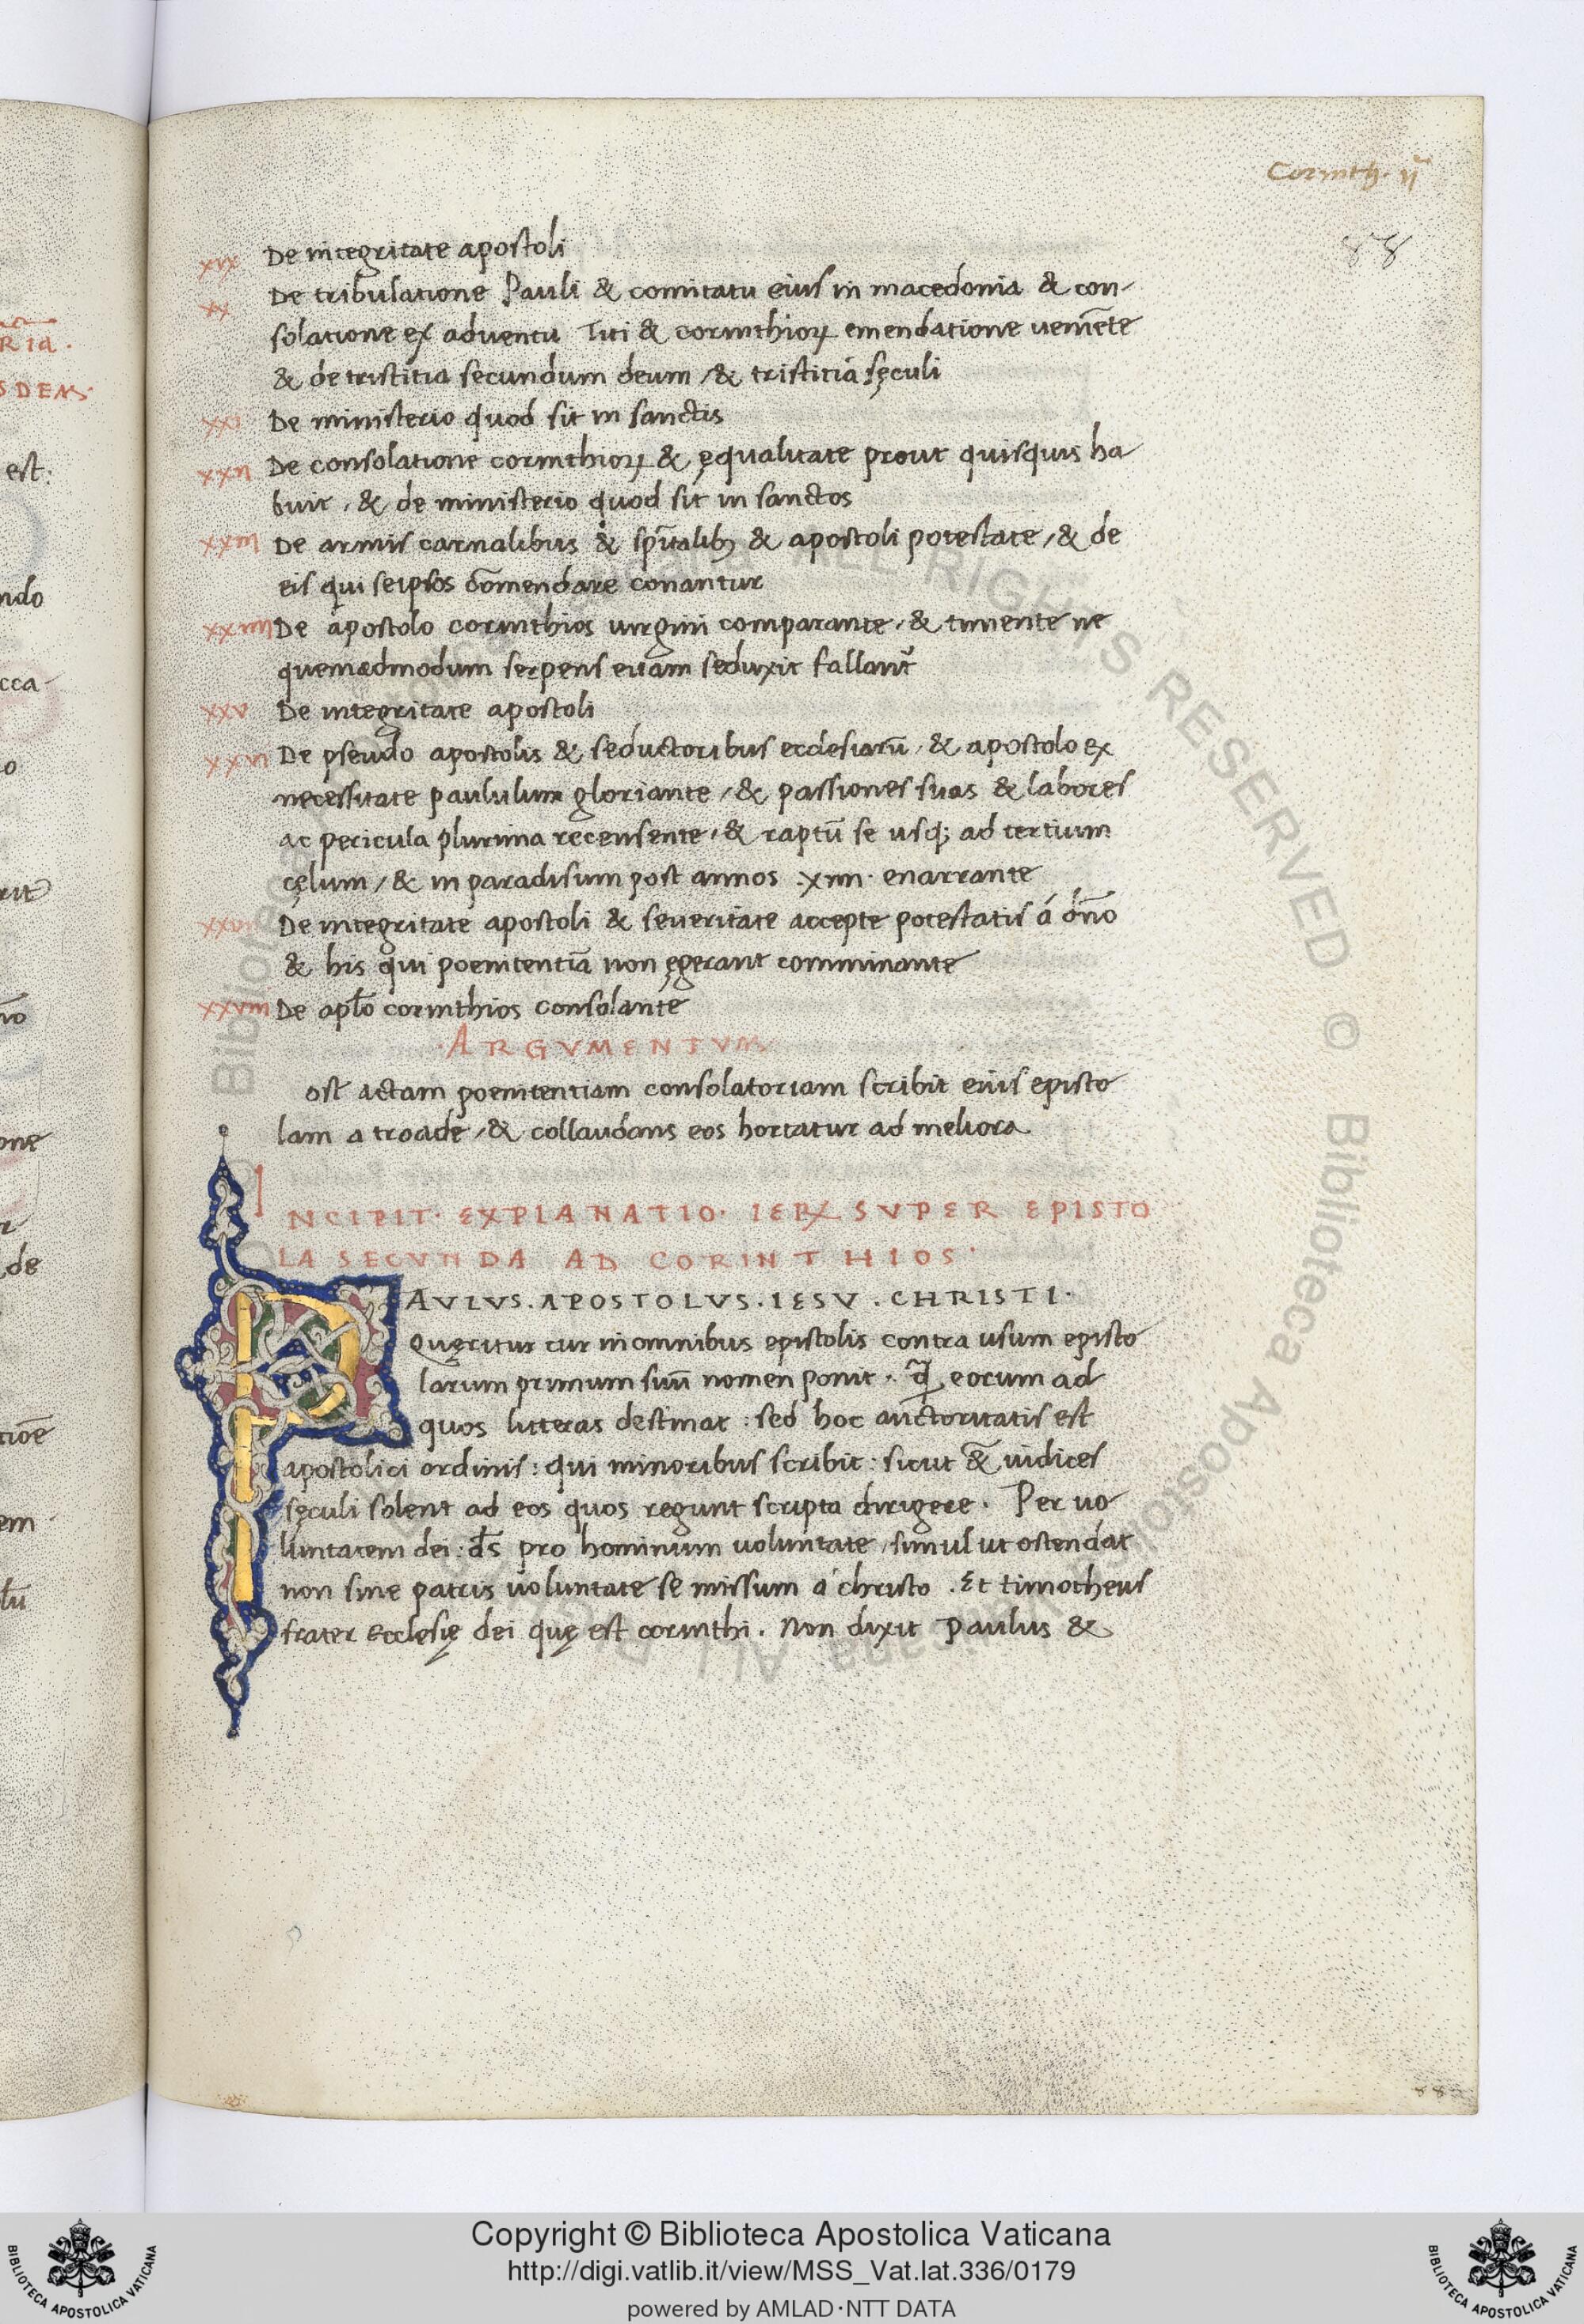 Corinth. ij
88
xix De integritate apostoli
xx De tribulatione Pauli & comitatu eius in macedonia & con-
solatione ex adventu Titi & corinthioꝝ emendatione uemēte
& de tristitia secundum deum / & tristitia sęculi
xxi De ministerio quod sit in sanctis
xxii De consolatione corinthioꝝ & ęqualitate prout quisquis ha
buit , & de ministerio quod sit in sanctos
xxiii De armis carnalibus & spũalibꝫ & apostoli potestate / & de
eis qui seipsos cōmendare conantur
xxiiii De apostolo corinthios uirgini comparante / & timente ne
quemadmodum serpens euam seduxit fallant᷑
xxv De integritate apostoli
xxvi De pseudo apostolis & seductoribus ecclesiarū , & apostolo ex
necessitate paululum gloriante / & passiones suas & labores
ac pericula plurima recensente , & raptū se usqꝫ ad tertium
cęlum / & in paradisum post annos .xiiii. enarrante
xxvii De integritate apostoli & seueritate accepte potestatis á dño
& his qui poenitentiā non ęgerant comminante
xxviii De apl̃o corinthios consolante
ARGVMENTVM
ost actam poenitentiam consolatoriam scribit eius episto
lam a troade / & collaudans eos hortatur ad meliora
INCIPIT. EXPLANATIO. IERꝶ SVPER EPISTO
LA SECVNDA AD CORINTHIOS.
PAVLVS . APOSTOLVS . IESV . CHRISTI .
Quęritur cur in omnibus epistolis contra usum episto
larum primum suū nomen ponit . eorum ad
quos litteras destinat : sed hoc auctoritatis est
apostolici ordinis : qui minoribus scribit : sicut & iudices
sęculi solent ad eos quos regunt scripta dirigere . Per uo
luntatem dei : ds̄ pro hominum uoluntate / simul ut ostendat
non sine patris uoluntate se missum á christo . Et timotheus
frater Ecclesię dei quę est corinthi . Non dixit Paulus &
88
RIA .
SDEM.
est:
ndo
cca
o
rit
no
one
de
tioē
em
Copyright © Biblioteca Apostolica Vaticana
http://digi.vatlib.it/view/MSS_Vat.lat.336/0179
powered by AMLAD·NTT DATA
BIBLIOTECA APOSTOLICA VATICANA
BIBLIOTECA APOSTOLICA VATICANA
Biblioteca Apostolica Vaticana ALL RIGHTS RESERVED © Biblioteca Apostolica Vaticana ALL RIGHTS